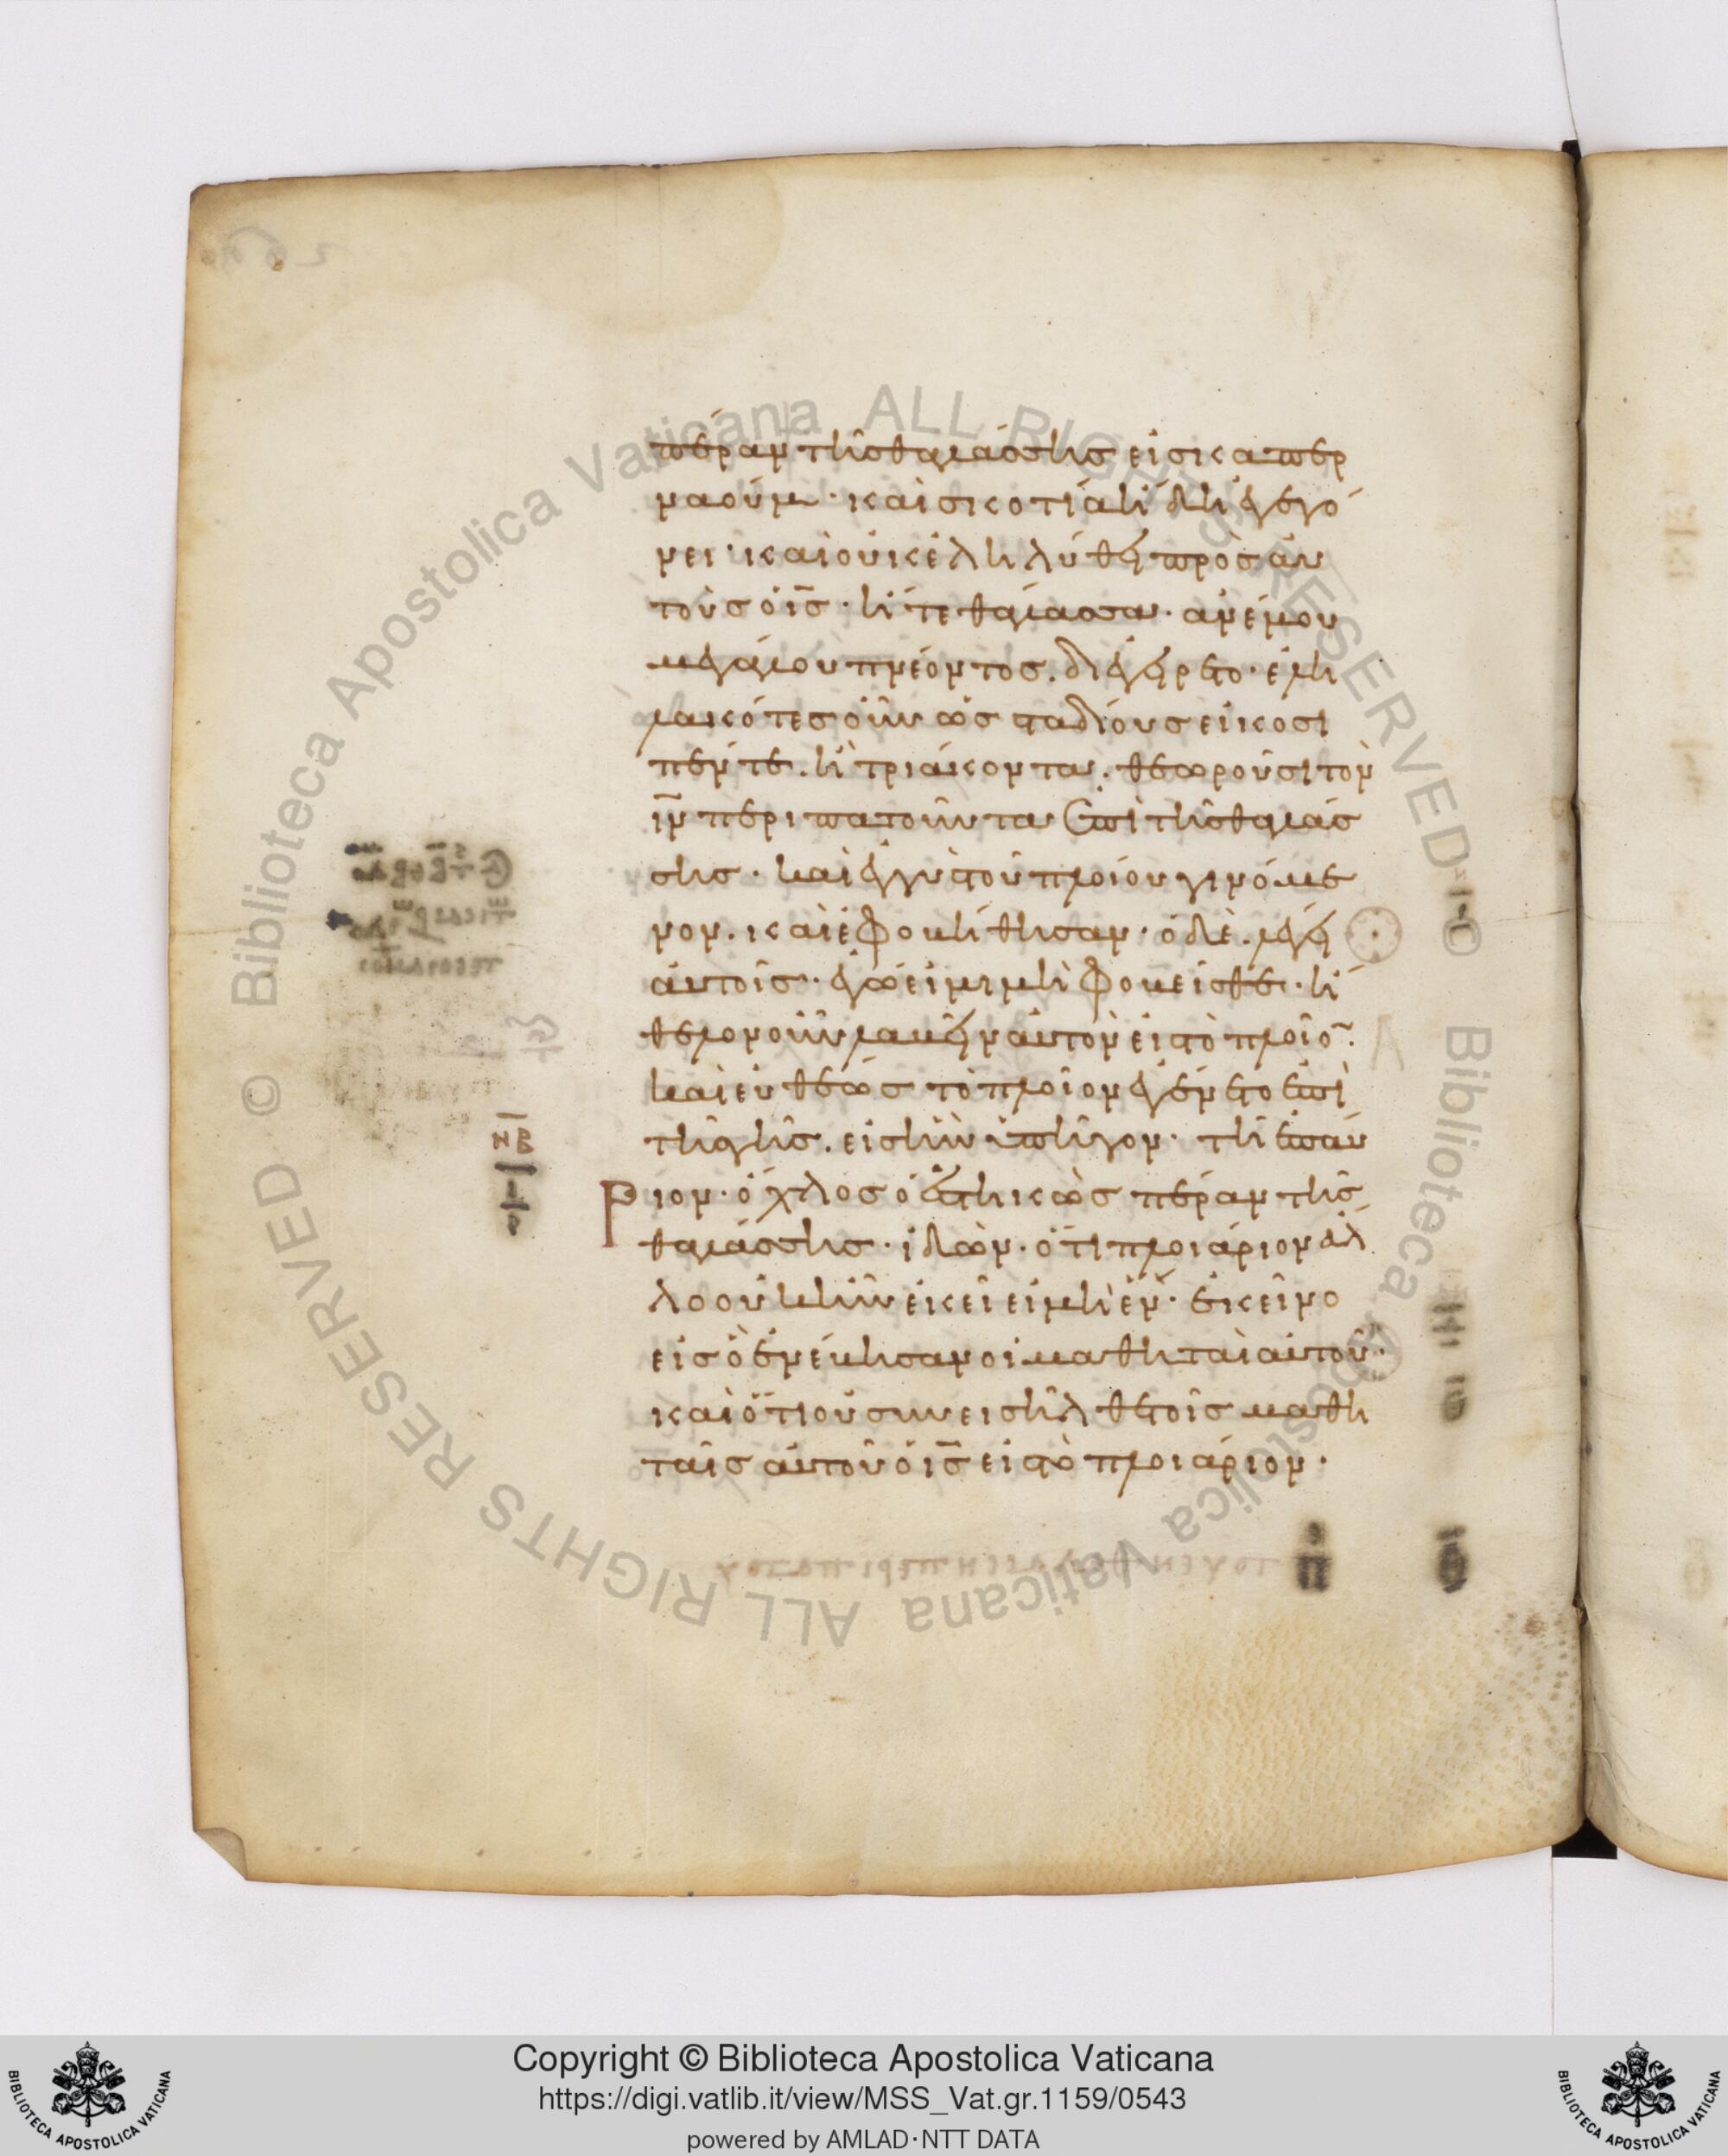 πέραν τῆς θαλάσσης εἰς καπερ
ναούμ· καὶ σκοτία ἤδη ἐγεγό
νει· καὶ οὐκ ἐληλύθει πρὸς αὐ
τοὺς ὁ ις̅· ἥ τε θάλασσα· ἀνέμου
μεγάλου πνέοντος. διηγείρετο· ἐλη
λακότες οὖν ὡς σταδίους εἴκοσι
πέντε. ἢ τριάκοντα· θεωροῦσι τὸν
ιν̅ περιπατοῦντα ἐπὶ τῆς θαλάσ
σης· καὶ ἐγγὺς τοῦ πλοίου γινόμε
νον. καὶ ἐφοβήθησαν· ὁ δὲ. λέγει
αὐτοῖς· ἐγώ εἰμι μὴ φοβεῖσθε· ἤ
θελον οὖν λαβεῖν αὐτὸν εἰς τὸ πλοῖο̅·
καὶ εὐθέως τὸ πλοῖον ἐγένετο ἐπὶ
τῆς γῆς. εἰς ἣν ὑπῆγον· τῇ ἐπαύ
ριον· ὁ ὄχλος ὁ ἑστηκὼς πέραν τῆς
θαλάσσης· ἰδὼν· ὅτι πλοιάριον ἄλ
λο οὐκ ἦν ἐκεῖ εἰ μὴ ἕν· ἐκεῖνο
εἰς ὃ ἐνέβησαν οἱ μαθηταὶ αὐτοῦ·
καὶ ὅτι οὐ συνεισῆλθε τοῖς μαθη
ταῖς αὐτοῦ ὁ ις̅ εἰς τὸ πλοιάριον·
ΝΒ
Copyright © Biblioteca Apostolica Vaticana
https://digi.vatlib.it/view/MSS_Vat.gr.1159/0543
powered by AMLAD·NTT DATA
BIBLIOTECA APOSTOLICA VATICANA
BIBLIOTECA APOSTOLICA VATICANA
© Biblioteca Apostolica Vaticana ALL RIGHTS RESERVED
© Biblioteca Apostolica Vaticana ALL RIGHTS RESERVED